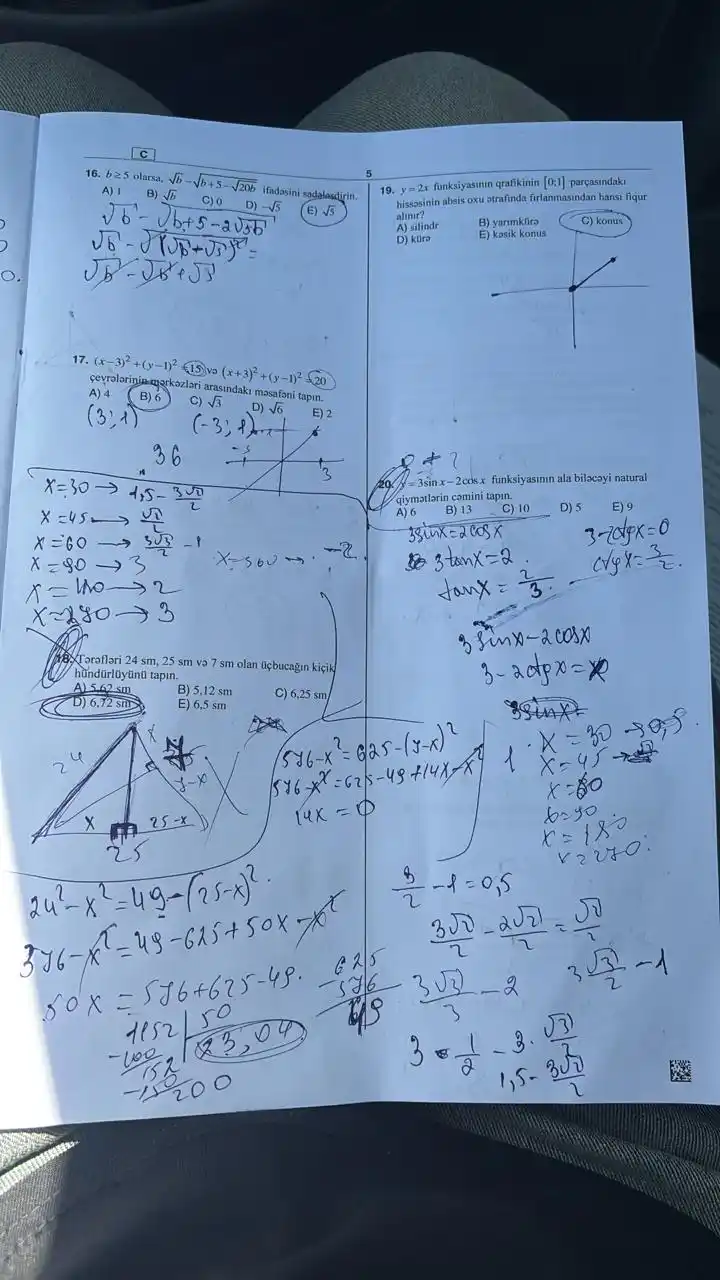 C
5
16. b ≥ 5 olarsa, √b − √(b+5−√20b) ifadəsini sadələşdirin.
A) 1 B) √b C) 0 D) −√5 E) √5
√b − √(b+5−2√5b)
√b − √b + √5
17. (x−3)² + (y−1)² = 15 və (x+3)² + (y−1)² = 20
çevrələrinin mərkəzləri arasındakı məsafəni tapın.
A) 4 B) 6 C) √3 D) √6 E) 2
(3; 1) (-3; 1)
36
-3
3
x=30 → 1,5 - 3√3/2
x=45 → √2/2
x=60 → 3√3/2 - 1
x=90 → 3
x=180 → 2
x=270 → 3
x=360 → -2
18. Tərəfləri 24 sm, 25 sm və 7 sm olan üçbucağın kiçik
hündürlüyünü tapın.
A) 5,62 sm B) 5,12 sm C) 6,25 sm
D) 6,72 sm E) 6,5 sm
24
x
7-x
x 25-x
25
576-x²=625-(7-x)²
576-x²=625-49+14x-x²
14x=0
24²-x²=49-(25-x)²
576-x²=49-625+50x-x²
50x=576+625-49
1152 50
-100 23,04
152
-150
200
625
576
49
19. y = 2x funksiyasının qrafikinin [0;1] parçasındakı
hissəsinin absis oxu ətrafında fırlanmasından hansı fiqur
alınır?
A) silindr B) yarımkürə C) konus
D) kürə E) kəsik konus
20. y = 3sin x − 2cos x funksiyasının ala biləcəyi natural
qiymətlərin cəmini tapın.
A) 6 B) 13 C) 10 D) 5 E) 9
3sinx=2cosx
3tanx=2
tanx=2/3
3-2ctgx=0
ctgx=3/2
3sinx-2cosx
3-2ctgx=
3sinx=
x=30 → 0,5
x=45
x=60
x=90
x=180
x=270
3/2 -1=0,5
3√2/2 - 2√2/2 = √2/2
3√3/3 - 2
3√3/2 - 1
3 · 1/2 - 3 · √3/2
1,5 - 3√3/2